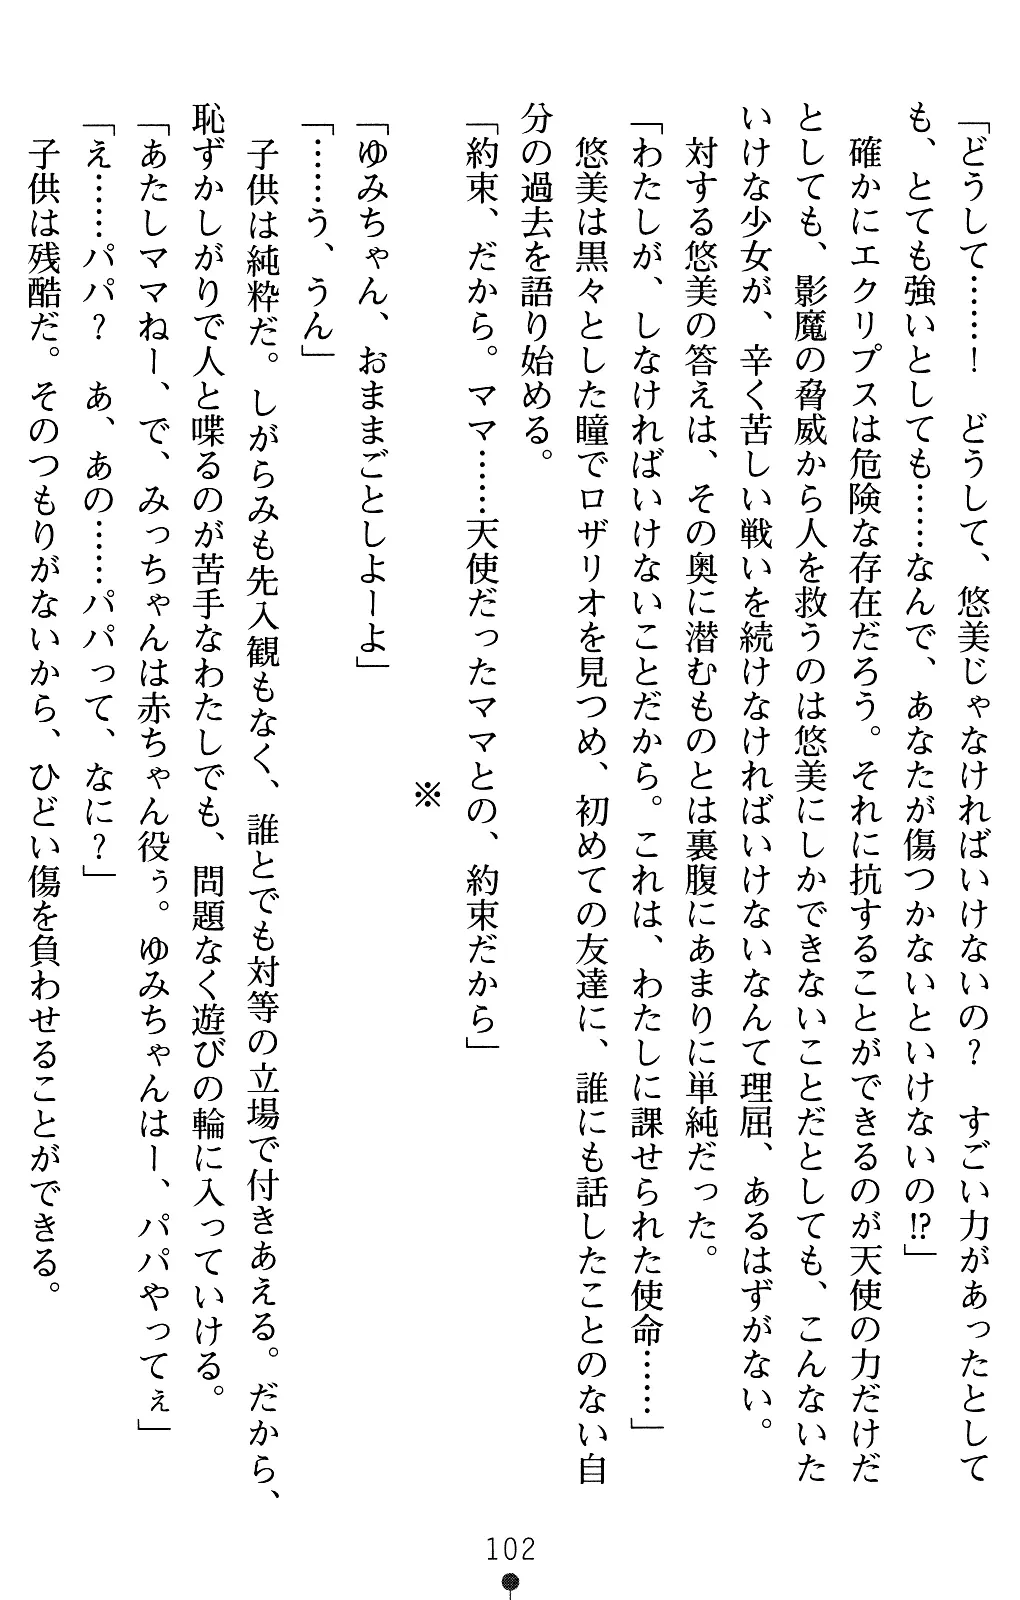 「どうして……！　どうして、悠美じゃなければいけないの？　すごい力があったとして
も、とても強いとしても……なんで、あなたが傷つかないといけないの!?」
　確かにエクリプスは危険な存在だろう。それに抗することができるのが天使の力だけだ
としても、影魔の脅威から人を救うのは悠美にしかできないことだとしても、こんないた
いけな少女が、辛く苦しい戦いを続けなければいけないなんて理屈、あるはずがない。
　対する悠美の答えは、その奥に潜むものとは裏腹にあまりに単純だった。
「わたしが、しなければいけないことだから。これは、わたしに課せられた使命……」
　悠美は黒々とした瞳でロザリオを見つめ、初めての友達に、誰にも話したことのない自
分の過去を語り始める。
「約束、だから。ママ……天使だったママとの、約束だから」
※
「ゆみちゃん、おままごとしよーよ」
「……う、うん」
　子供は純粋だ。しがらみも先入観もなく、誰とでも対等の立場で付きあえる。だから、
恥ずかしがりで人と喋るのが苦手なわたしでも、問題なく遊びの輪に入っていける。
「あたしママねー、で、みっちゃんは赤ちゃん役ぅ。ゆみちゃんはー、パパやってぇ」
「え……パパ？　あ、あの……パパって、なに？」
　子供は残酷だ。そのつもりがないから、ひどい傷を負わせることができる。
102